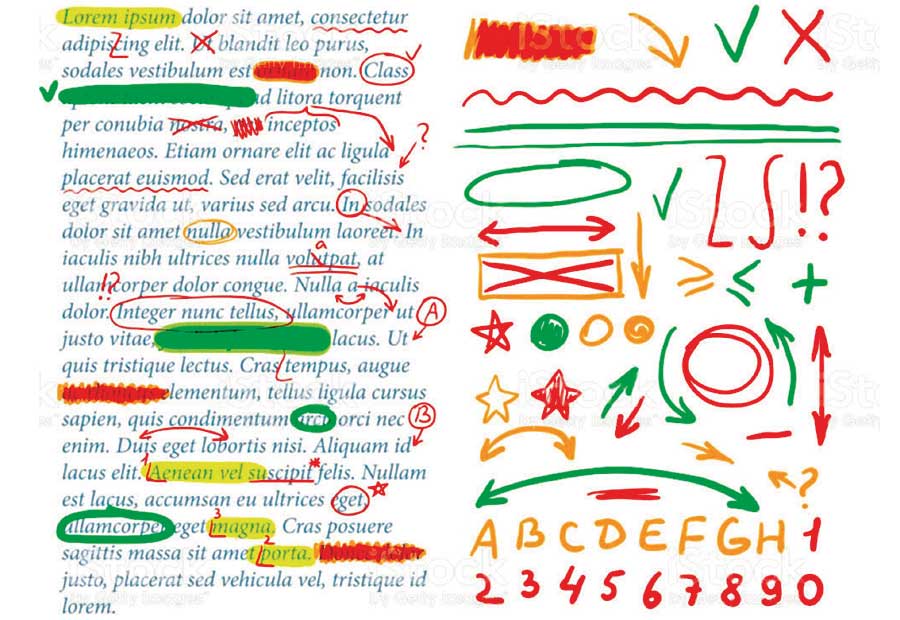 Lorem ipsum dolor sit amet, consectetur
adipiscing elit. Ut blandit leo purus,
sodales vestibulum est non. Class
ad litora torquent
per conubia nostra, inceptos
himenaeos. Etiam ornare elit ac ligula
?
placerat euismod. Sed erat velit, facilisis
eget gravida ut, varius sed arcu. In sodales
dolor sit amet nulla vestibulum laoreet. In
a
iaculis nibh ultrices nulla volutpat, at
ullamcorper dolor congue. Nulla a iaculis
!?
dolor. Integer nunc tellus, ullamcorper ut
A
justo vitae, lacus. Ut
quis tristique lectus. Cras tempus, augue
elementum, tellus ligula cursus
sapien, quis condimentum arcu orci nec
B
enim. Duis eget lobortis nisi. Aliquam id
1
lacus elit. Aenean vel suscipit* felis. Nullam
est lacus, accumsan eu ultrices eget,
3
ullamcorper eget magna. Cras posuere
2
sagittis massa sit amet porta. Donec dolor
justo, placerat sed vehicula vel, tristique id
lorem.
!?
≥ ≤ +
?
A B C D E F G H 1
2 3 4 5 6 7 8 9 0
iStock
by Getty Images™